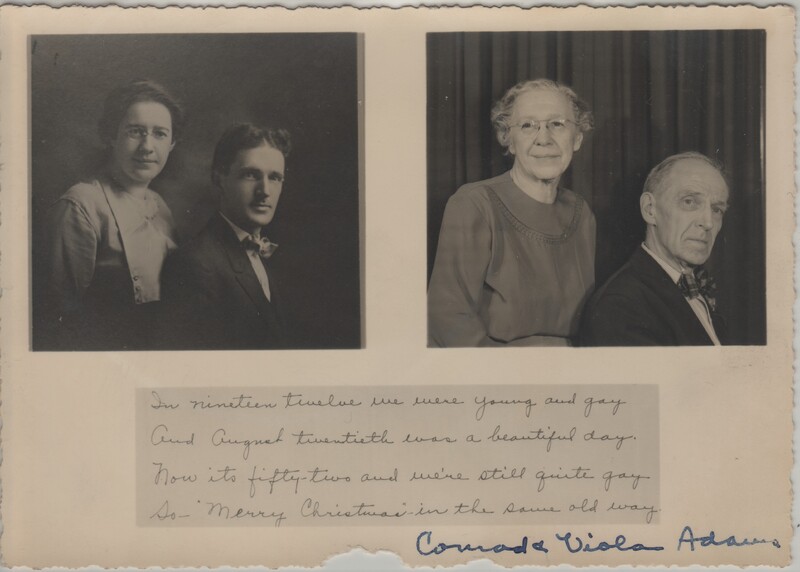 In nineteen twelve we were young and gay
And August twentieth was a beautiful day.
Now its fifty-two and we're still quite gay
So - "Merry Christmas" - in the same old way.
Conrad & Viola Adams